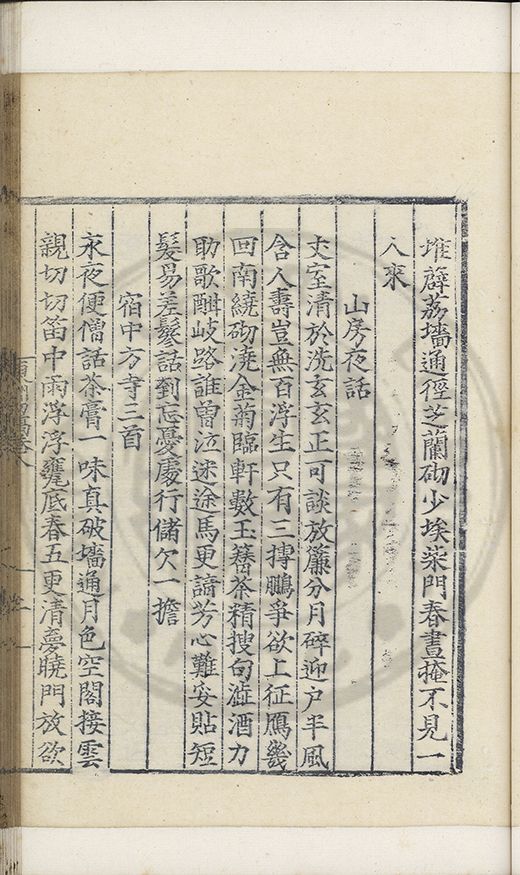 堆薜荔墻通徑芝蘭砌少埃柴門春晝掩不見一
人來
山房夜話
丈室清於洗玄玄正可談放簾分月碎迎户半風
含人壽豈無百浮生只有三摶鵬爭欲上征鴈幾
回南繞砌澆金菊臨軒數玉簪茶精搜句澁酒力
助歌酣岐路誰曾泣迷途馬更諳芳心難妥貼短
髮易差鬖話到忘憂處行儲欠一擔
宿中方寺三首
永夜便僧話茶膏一味真破墻通月色空閣接雲
親切切笛中雨浮浮甕底春五更清夢曉門放欲